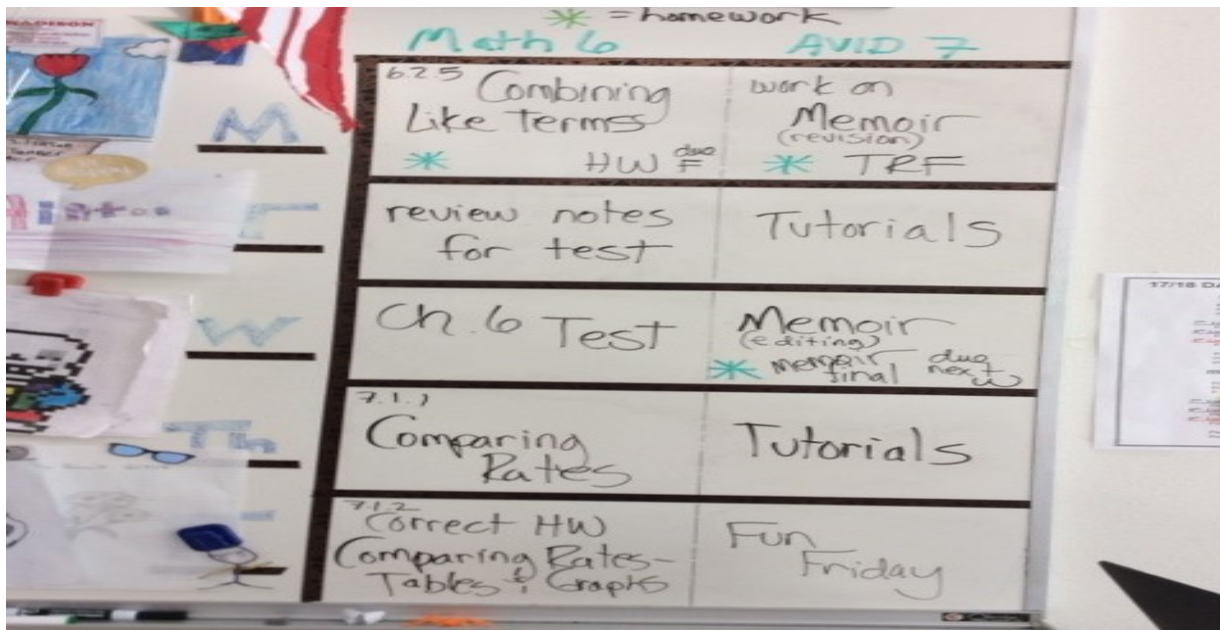 MADISON
* = homework
Math 6 AVID 7
M
6.2.5 Combining
Like Terms
* HW due F
work on
Memoir
(revision)
* TRF
T
review notes
for test
Tutorials
W
Ch. 6 Test
Memoir
(editing)
* memoir due
final next W
Th
7.1.1
Comparing
Rates
Tutorials
7.1.2
Correct HW
Comparing Rates-
Tables & Graphs
Fun
Friday
17/18 DA